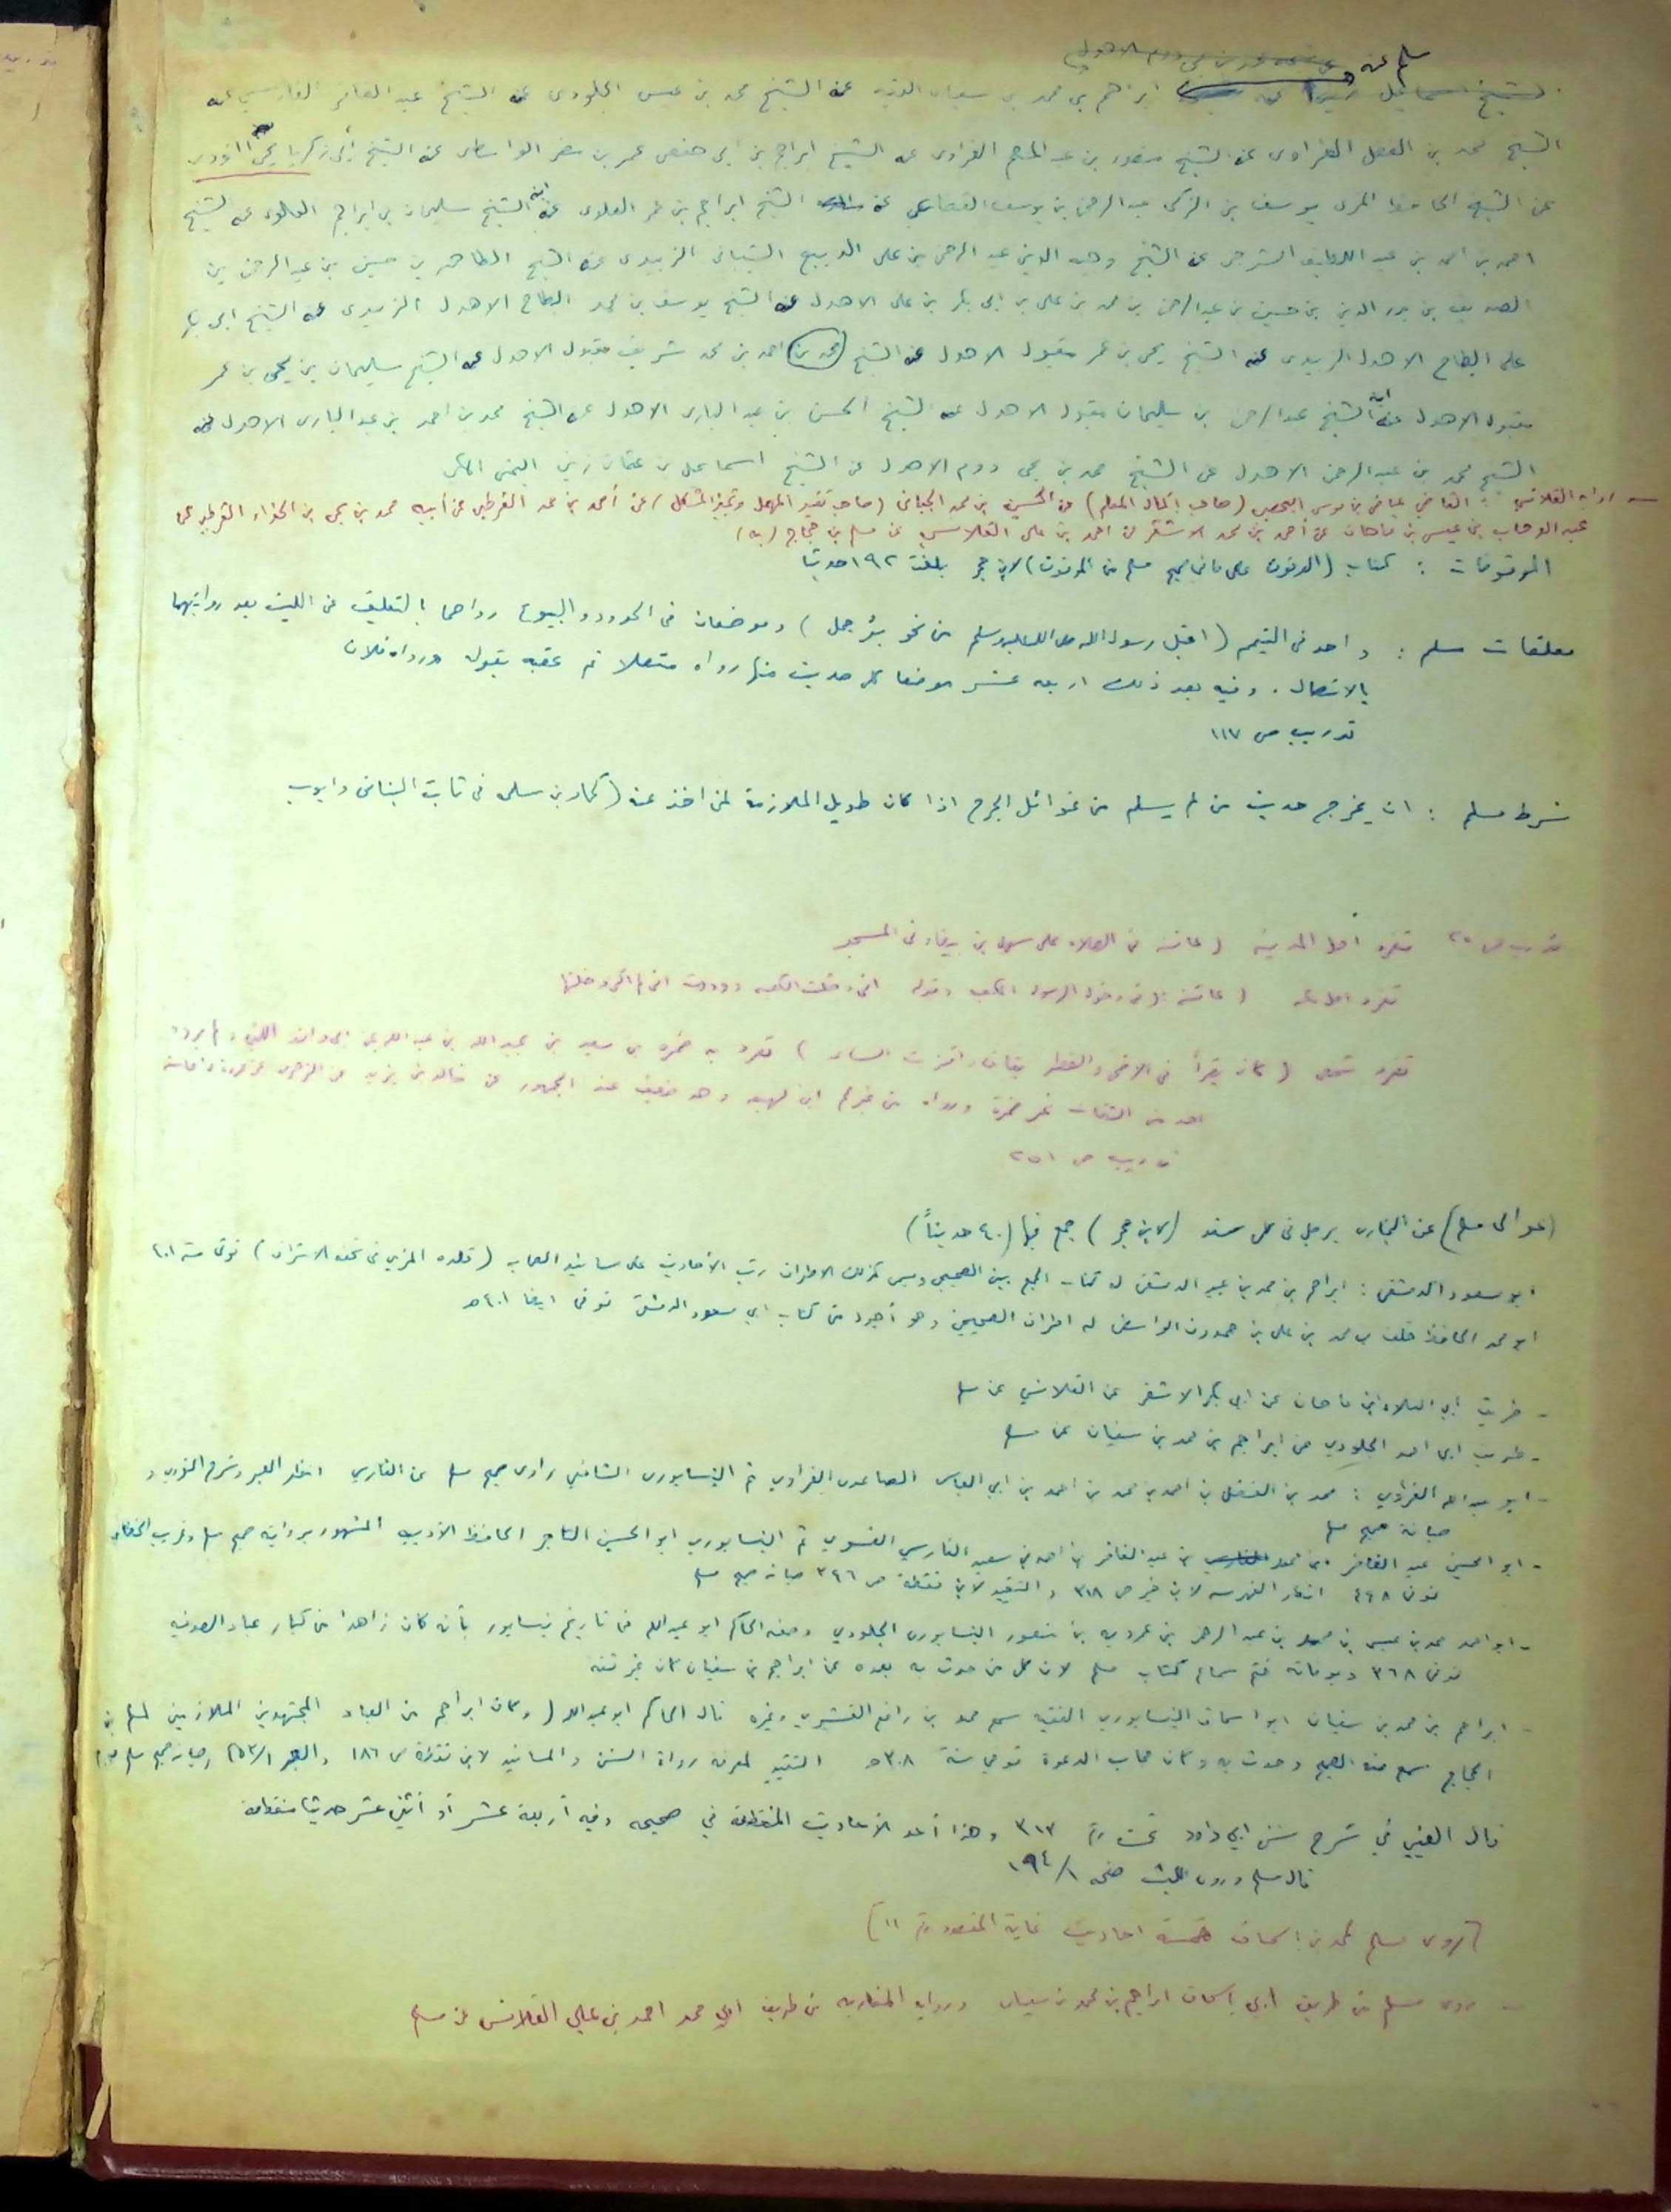 مسلم عنه
ابراهيم بن محمد بن سفيان الفقيه عنه الشيخ محمد بن عيسى الجلودى عنه الشيخ عبد الغافر الفارسي عنه
الشيخ محمد بن الفضل الفراوى عنه الشيخ منصور بن عبد المنعم الفراوى عنه الشيخ ابراهيم بن ابى حفص عمر بن مضر الواسطى عنه الشيخ أبى زكريا يحيى النووى
عن الشيخ الحافظ المزى يوسف بن الزكى عبد الرحمن بن يوسف القضاعي عنه الشيخ ابراهيم بن عمر العلوى عنه ابنه الشيخ سليمان بن ابراهيم العلوى عنه الشيخ
احمد بن احمد بن عبد اللطيف الشرجى عنه الشيخ وجيه الدين عبد الرحمن بن على الديبع الشيبانى الزبيدى عنه الشيخ الطاهر بن حسين بن عبد الرحمن بن
الصديق بن بدر الدين بن حسين بن عبد الرحمن بن محمد بن على بن ابى بكر بن على الاهدل عنه الشيخ يوسف بن محمد البطاح الاهدل الزبيدى عنه الشيخ ابى بكر
على البطاح الاهدل الزبيدى عنه الشيخ يحيى بن عمر مقبول الاهدل عنه الشيخ (محمد بن) احمد بن محمد شريف مقبول الاهدل عنه الشيخ سليمان بن يحيى بن عمر
مقبول الاهدل عنه ابنه الشيخ عبد الرحمن بن سليمان مقبول الاهدل عنه الشيخ الحسن بن عبد البارى الاهدل عنه الشيخ محمد بن احمد بن عبد البارى الاهدل عنه
الشيخ محمد بن عبد الرحمن الاهدل عن الشيخ محمد بن يحيى دوم الاهدل عن الشيخ اسماعيل بن عثمان زين اليمنى المكى
رواية القلانسي : القاضي عياض بن موسى اليحصبي (صاحب إكمال المعلم) عن الحسين بن محمد الجيانى (صاحب تقييد المهمل وتمييز المشكل) عن أحمد بن محمد القرطبى عن أبيه محمد بن يحيى بن الحذاء القرطبى عن
عبد الوهاب بن عيسى بن ماهان عن أحمد بن محمد الاشقر عن احمد بن على القلانسي عن مسلم بن حجاج (به)
الموقوفات : كتاب (الوقوف على ما فى صحيح مسلم من الموقوف) لابن حجر بلغت ١٩٢ حديثا
معلقات مسلم : واحد فى التيمم (اقبل رسول الله صلى الله عليه وسلم من نحو بئر جمل) وموضعان فى الحدود والبيوع رواهما بالتعليق عن الليث بعد روايتهما
بالاتصال . وفيه بعد ذلك اربعه عشر موضعا كل حديث منها رواه متصلا ثم عقبه بقوله ورواه فلان
تدريب ص ١١٧
شرط مسلم : ان يخرج حديث من لم يسلم من غوائل الجرح اذا كان طويل الملازمة لمن اخذ عنه (كحماد بن سلمه فى ثابت البنانى وايوب
تفرد أهل المدينة (عائشه فى الصلاه على سهيل بن بيضاء فى المسجد
تفرد اهل مكه (عائشه فى دخول الرسول الكعبه وقوله انى دخلت الكعبه ووددت انى لم اكن دخلتها
تفرد شخص (كان يقرأ فى الاضحى والفطر بقاف واقتربت الساعه) تفرد به ضمره بن سعيد بن عبيد الله بن عبد الله عن ابى واقد الليثى ولم يروه
احد من الثقات غير ضمرة ورواه من غيرهم ابن لهيعه وهو ضعيف عند الجمهور عن خالد بن يزيد عن الزهرى عن عروة عن عائشه
تدريب ص ٢٥١
(عوالى مسلم) عن البخارى برجل فى كل سند (لابن حجر) جمع فيها (٤٠ حديثاً)
ابو مسعود الدمشقى : ابراهيم بن محمد بن عبيد الدمشقى له كتاب الجمع بين الصحيحين وسمى كذلك الاطراف رتب الأحاديث على مسانيد الصحابه (قلده المزي فى تحفه الاشراف) توفى سنة ٤٠١
ابو محمد الحافظ خلف بن محمد بن على بن حمدون الواسطى له اطراف الصحيحين وهو أجود من كتاب ابي مسعود الدمشقى توفى ايضا ٤٠١ هـ
- طريق أبي العلاء ابن ماهان عن ابى بكر الاشقر عن القلانسي عن مسلم
- طريق ابى احمد الجلودي عن ابراهيم بن محمد بن سفيان عن مسلم
- ابو عبد الله الفراوي : محمد بن الفضل بن احمد بن محمد بن احمد بن ابي العباس الصاعدى الفراوي ثم النيسابورى الشافعي راوى صحيح مسلم عن الفارسي انظر العبر وشرح النووي و
صيانة صحيح مسلم
- ابو الحسين عبد الغافر ابن محمد بن عبد الغافر بن احمد بن سعيد الفارسي الفسوي ثم النيسابوري ابو الحسين التاجر الحافظ الأديب المشهور برواية صحيح مسلم وغريب الخطابى
توفى ٤٤٨ انظر الفهرسه لابن خير ص ٣١٨ والتقييد لابن نقطة ص ٣٤٦ صيانه صحيح مسلم
- ابو احمد محمد بن عيسى بن محمد بن عبد الرحمن بن عمرويه بن منصور النيسابورى الجلودي وصفه الحاكم ابو عبد الله فى تاريخ نيسابور بأنه كان زاهدا من كبار عباد الصوفيه
توفى ٣٦٨ وبوفاته ختم سماع كتاب مسلم لان كل من حدث به بعده عن ابراهيم بن سفيان كان غير ثقه
- ابراهيم بن محمد بن سفيان ابو اسحاق النيسابوري الفقيه سمع محمد بن رافع القشيري وغيره قال الحاكم ابو عبد الله (وكان ابراهيم من العباد المجتهدين الملازمين لمسلم بن
الحجاج سمع منه الصحيح وحدث به وكان مجاب الدعوة توفي سنة ٣٠٨ هـ التقييد لمعرفة رواة السنن والمسانيد لابن نقطة ص ١٨٦ والعبر
قال العيني في شرح سنن ابي داود تحت رقم ٣١٣ وهذا أحد الأحاديث المنقطعة في صحيحه وفيه أربعة عشر أو أثني عشر حديثا منقطعة
قال مسلم وروى الليث صفحه ١٩٤/١
[روى مسلم لمحمد بن اسحاق خمسة احاديث غاية المقصود رقم ١١]
- يروى مسلم من طريق ابى إسحاق ابراهيم بن محمد بن سفيان ورواية المغاربه من طريق ابى محمد احمد بن علي القلانسى عن مسلم